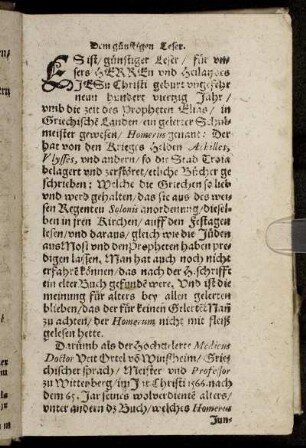 Dem günstigen Leser.
ES ist / günstiger Leser / für vn-
sers HERREn vnd Heilandes
JESu Christi geburt vngefehr
neun hundert viertzig Jahr /
vmb die zeit des Propheten Elias / in
Griechische Landen / ein gelerter Schul-
meister gewesen / Homerus genant: Der
hat von den Krieges Helden Achilles,
Vlysses, vnd andern / so die Stad Troia
belagert vnd zerstöret / etliche Bücher ge-
schrieben: Welche die Griechen so lieb
vnd werd gehalten / das sie aus des wei-
sen Regenten Solonis anordenung / diesel-
ben in jren Kirchen / auff den Festagen
lesen / vnd daraus / gleich wie die Jüden
aus Mosi vnd den Propheten haben pre-
digen lassen. Man hat auch noch nicht
erfahrē können / das nach der H. schrifft
ein elter Buch gefundē were. Vnd ist die
meinung für alters bey allen gelerten
blieben / das der für keinen Gelertē Mañ
zu achten / der Homerum nicht mit fleiß
gelesen hette.
Darumb als der Hochgelerte Medicus
Doctor Veit Ortel võ Winßheim / Grie-
chischer sprach / Meister vnd Professor
zu Wittenberg / im Jar Christi 1566. nach
dem 65. Jar seines wolverdiente alters /
vnter andern dz Buch / welches Homerus
Jun-